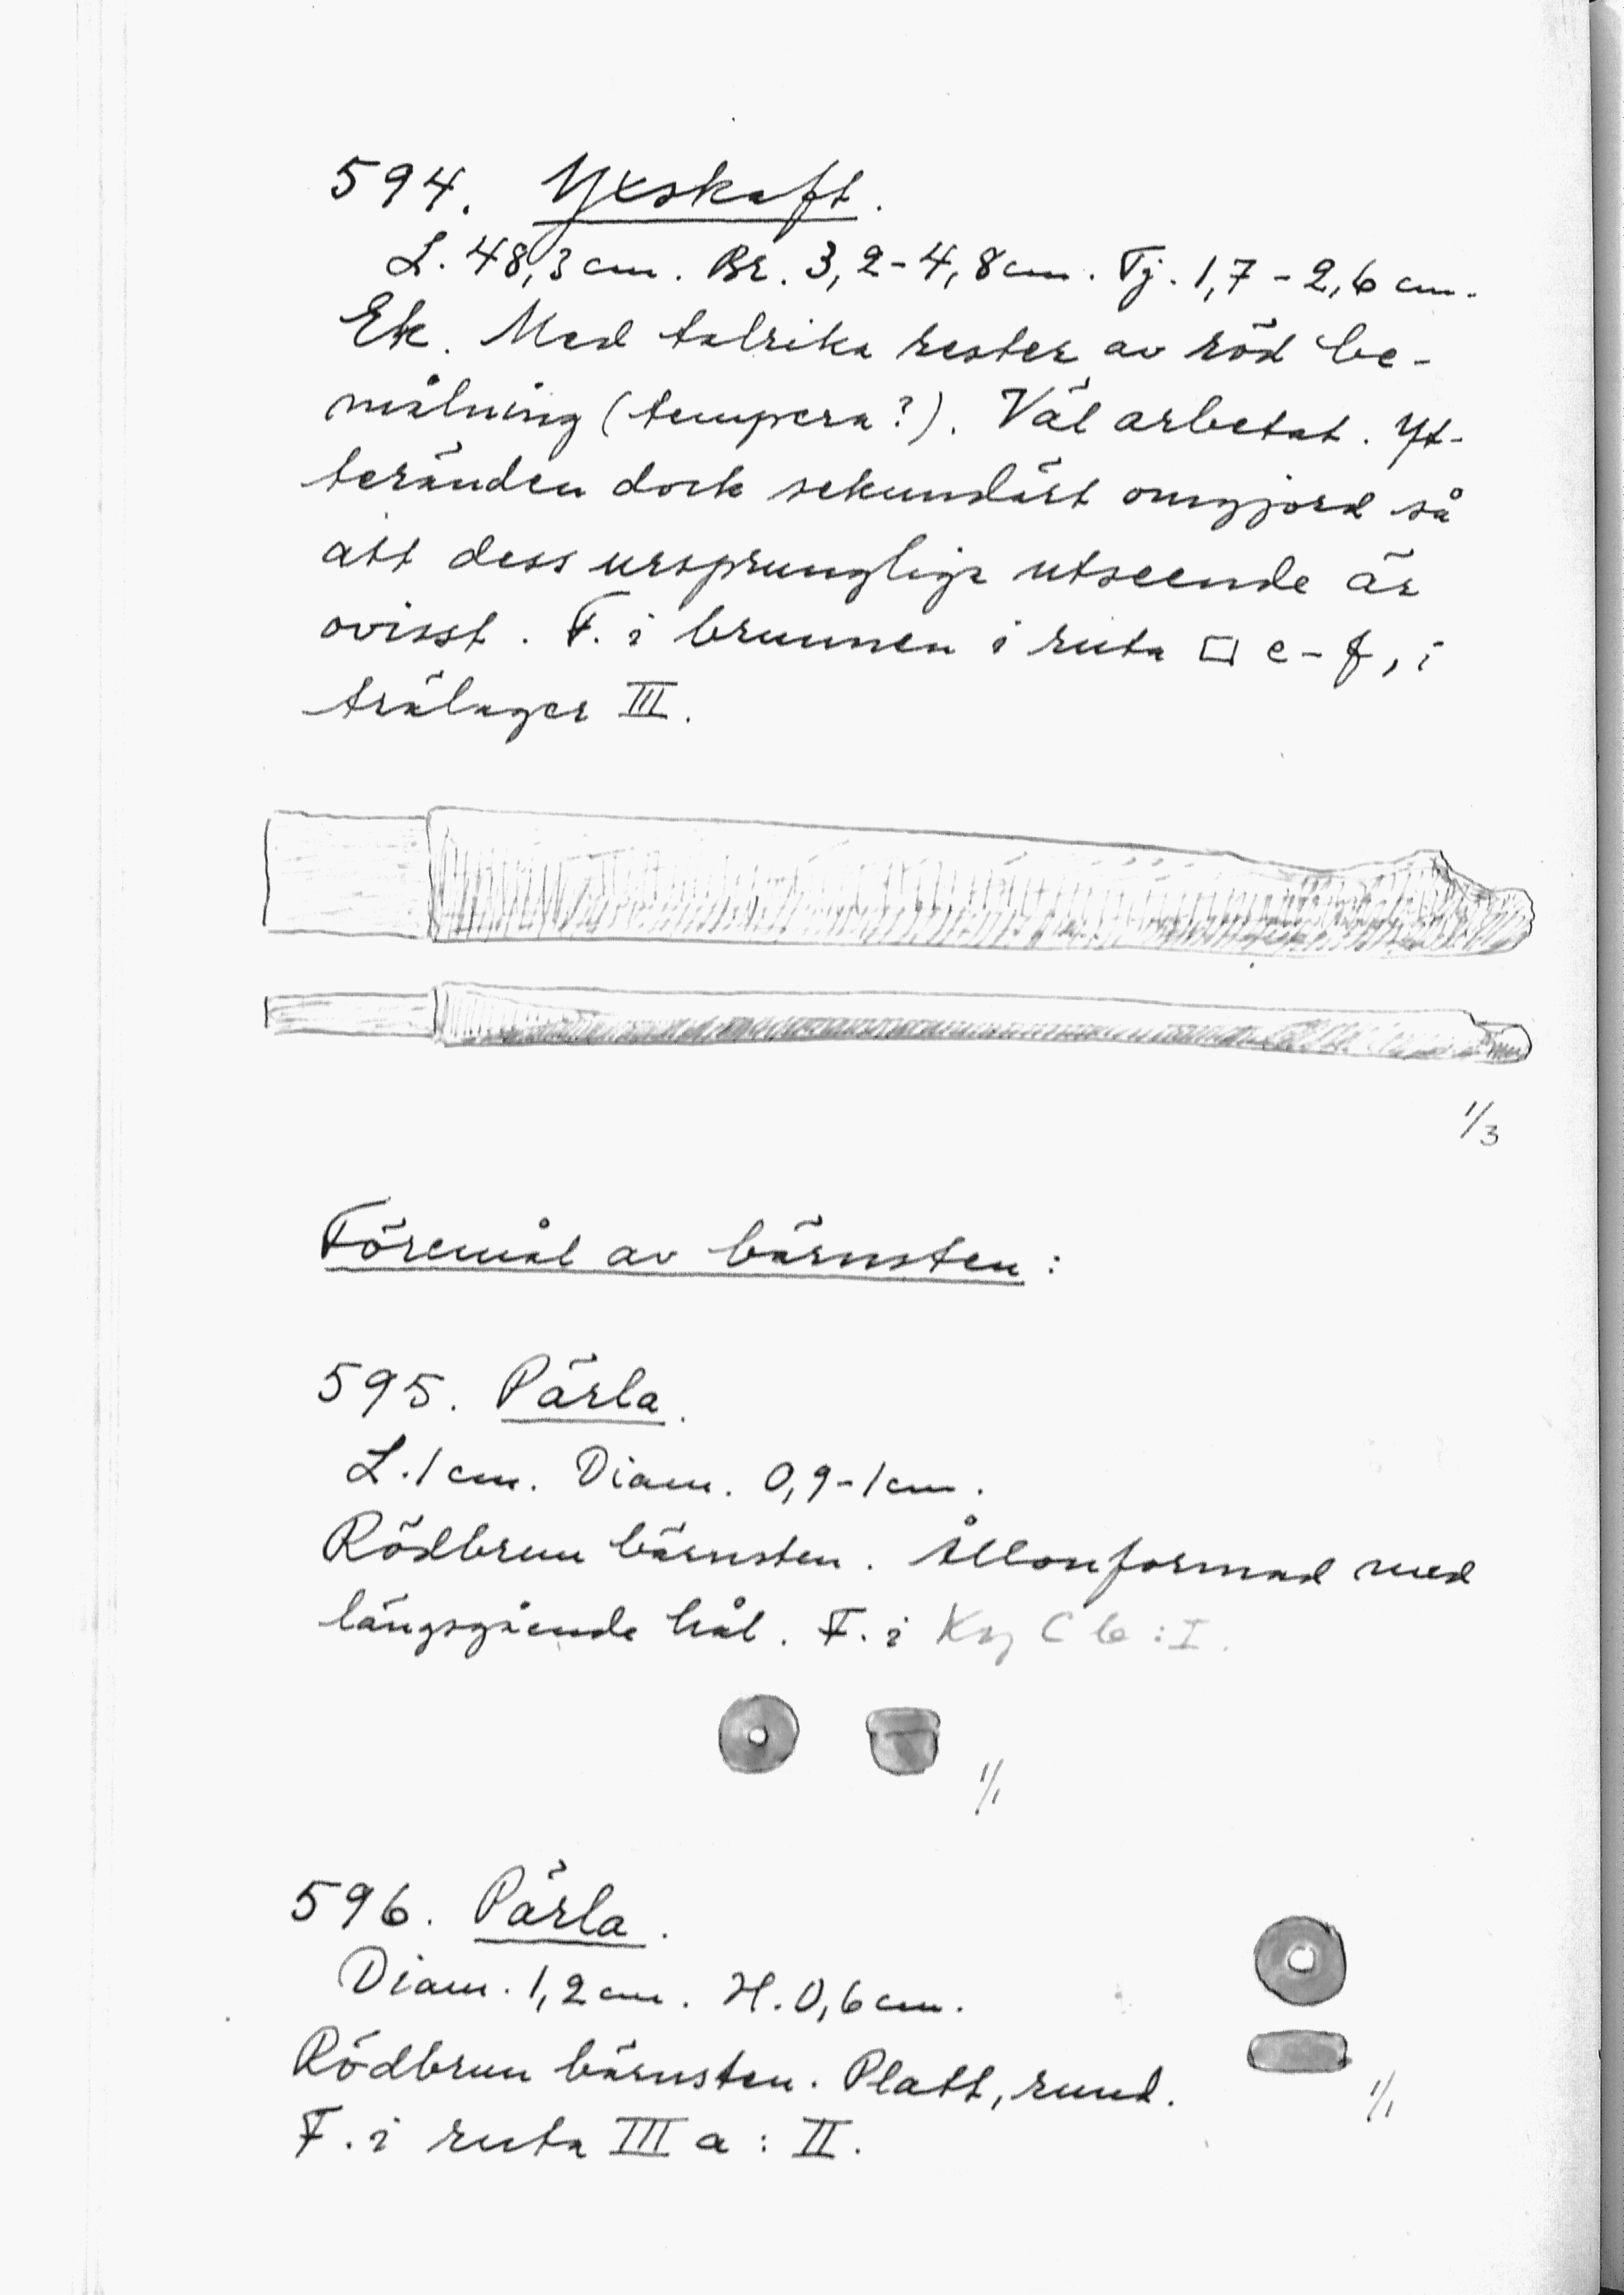 594. Yxskaft.
L. 48,3 cm. Br. 3,2-4,8 cm. Tj. 1,7-2,6 cm.
Ek. Med talrika rester av röd be-
målning (tempera?). Väl arbetat. Yt-
teränden dock sekundärt omgjord så
att dess ursprungliga utseende är
ovisst. F. i brunnen i ruta □ e-f, i
trälager III.
1/3
Föremål av bärnsten:
595. Pärla.
L. 1 cm. Diam. 0,9-1 cm.
Rödbrun bärnsten. Ållonformad med
längsgående hål. F. i C b : I.
1/1
596. Pärla.
Diam. 1,2 cm. H. 0,6 cm.
Rödbrun bärnsten. Platt, rund.
1/1
F. i ruta III a : II.